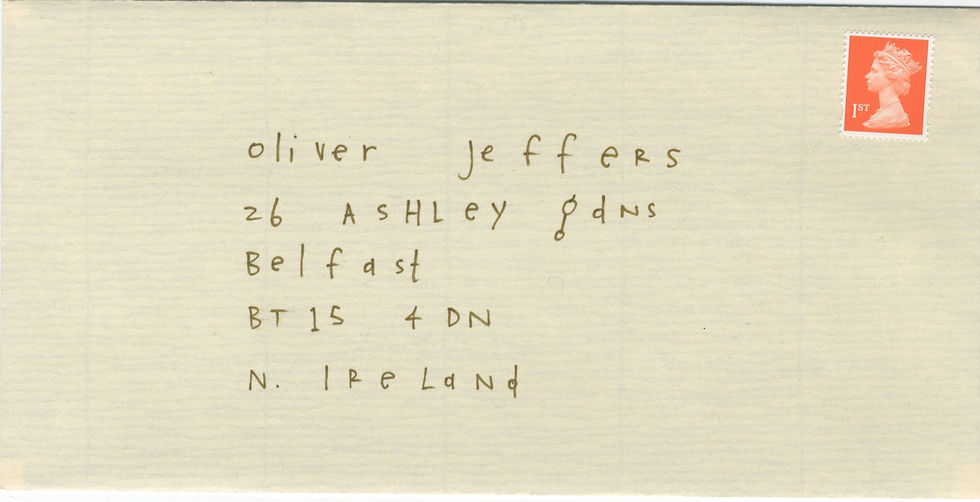 1ST
oliver Jeffers
26 ASHLey gdNS
Belfast
BT15 4DN
N. IReLaNd